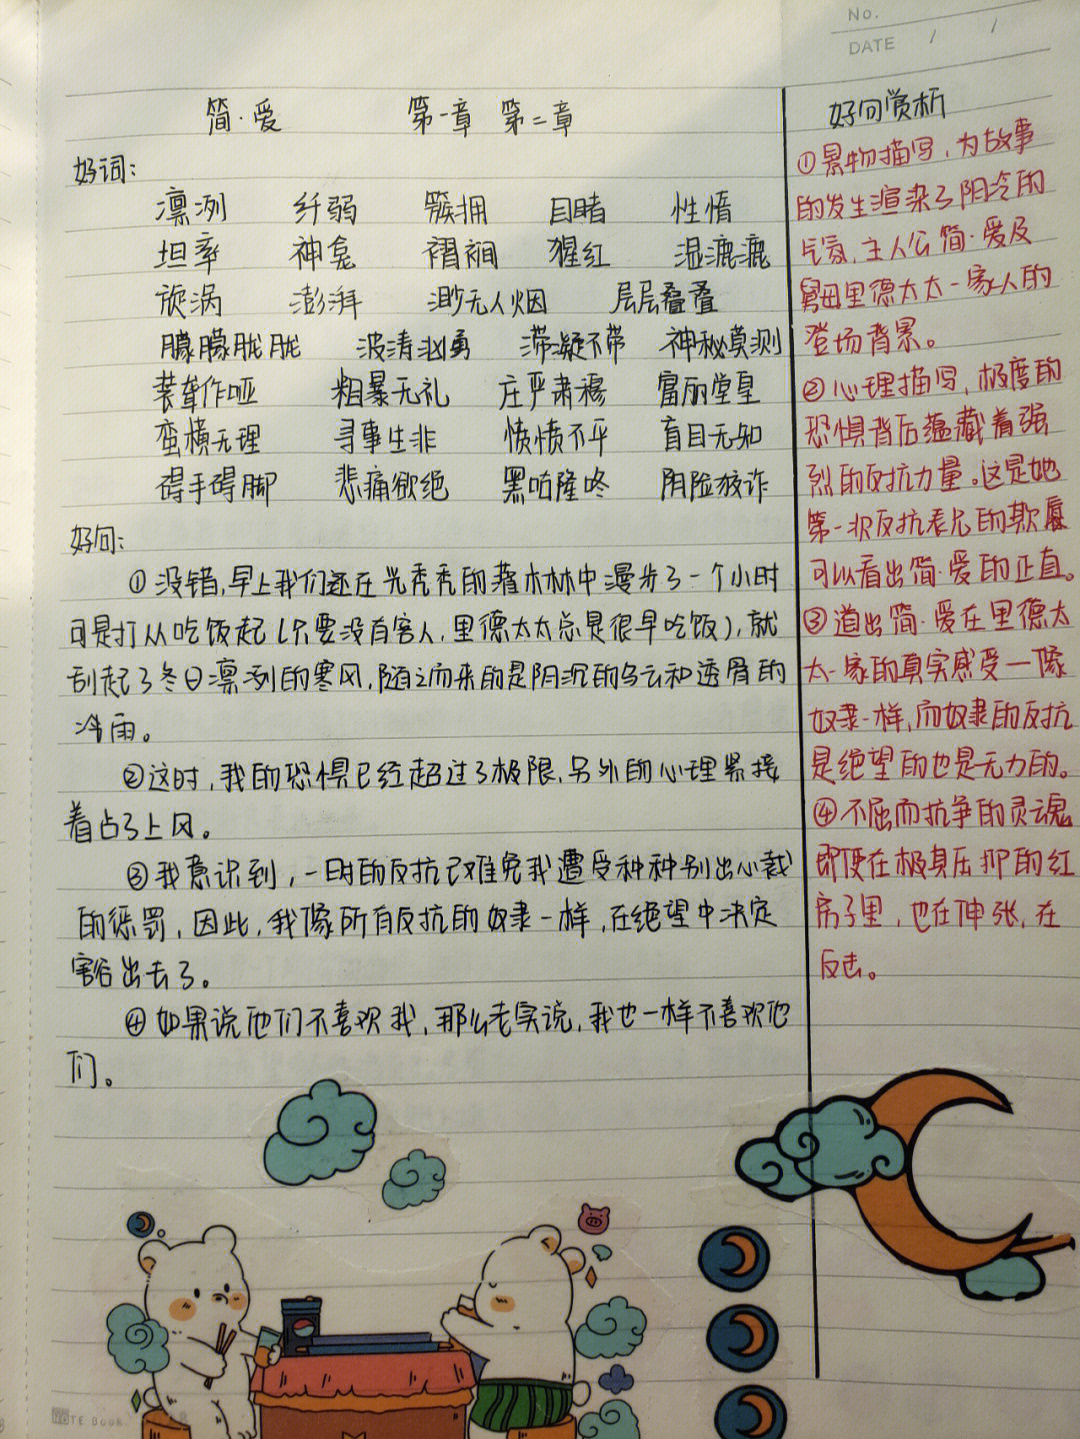 No.
DATE / /
简·爱 第一章 第二章
好词:
凛冽 纤弱 簇拥 目睹 性情
坦率 神龛 褶裥 猩红 湿漉漉
旋涡 澎湃 渺无人烟 层层叠叠
朦朦胧胧 波涛汹勇 滞凝不带 神秘莫测
装聋作哑 粗暴无礼 庄严肃穆 富丽堂皇
蛮横无理 寻事生非 愤愤不平 盲目无知
碍手碍脚 悲痛欲绝 黑咕隆咚 阴险狡诈
好句:
①没错,早上我们还在光秃秃的灌木林中漫步了一个小时
可是打从吃饭起(只要没有客人,里德太太总是很早吃饭),就
刮起了冬日凛冽的寒风,随之而来的是阴沉的乌云和透骨的
冷雨。
②这时,我的恐惧已经超过了极限,另外的心理紧接
着占了上风。
③我意识到,一时的反抗已难免我遭受种种别出心裁
的惩罚,因此,我像所有反抗的奴隶一样,在绝望中决定
豁出去了。
④如果说他们不喜欢我,那么老实说,我也一样不喜欢他
们。
好句赏析
①景物描写,为故事
的发生渲染了阴冷的
气氛,主人公简·爱及
舅母里德太太一家人的
登场背景。
②心理描写,极度的
恐惧背后蕴藏着强
烈的反抗力量。这是她
第一次反抗表兄的欺辱
可以看出简·爱的正直。
③道出简·爱在里德太
太一家的真实感受一像
奴隶一样,而奴隶的反抗
是绝望的也是无力的。
④不屈而抗争的灵魂
即便在极具压抑的红
房子里,也在伸张,在
反击。
NOTE BOOK